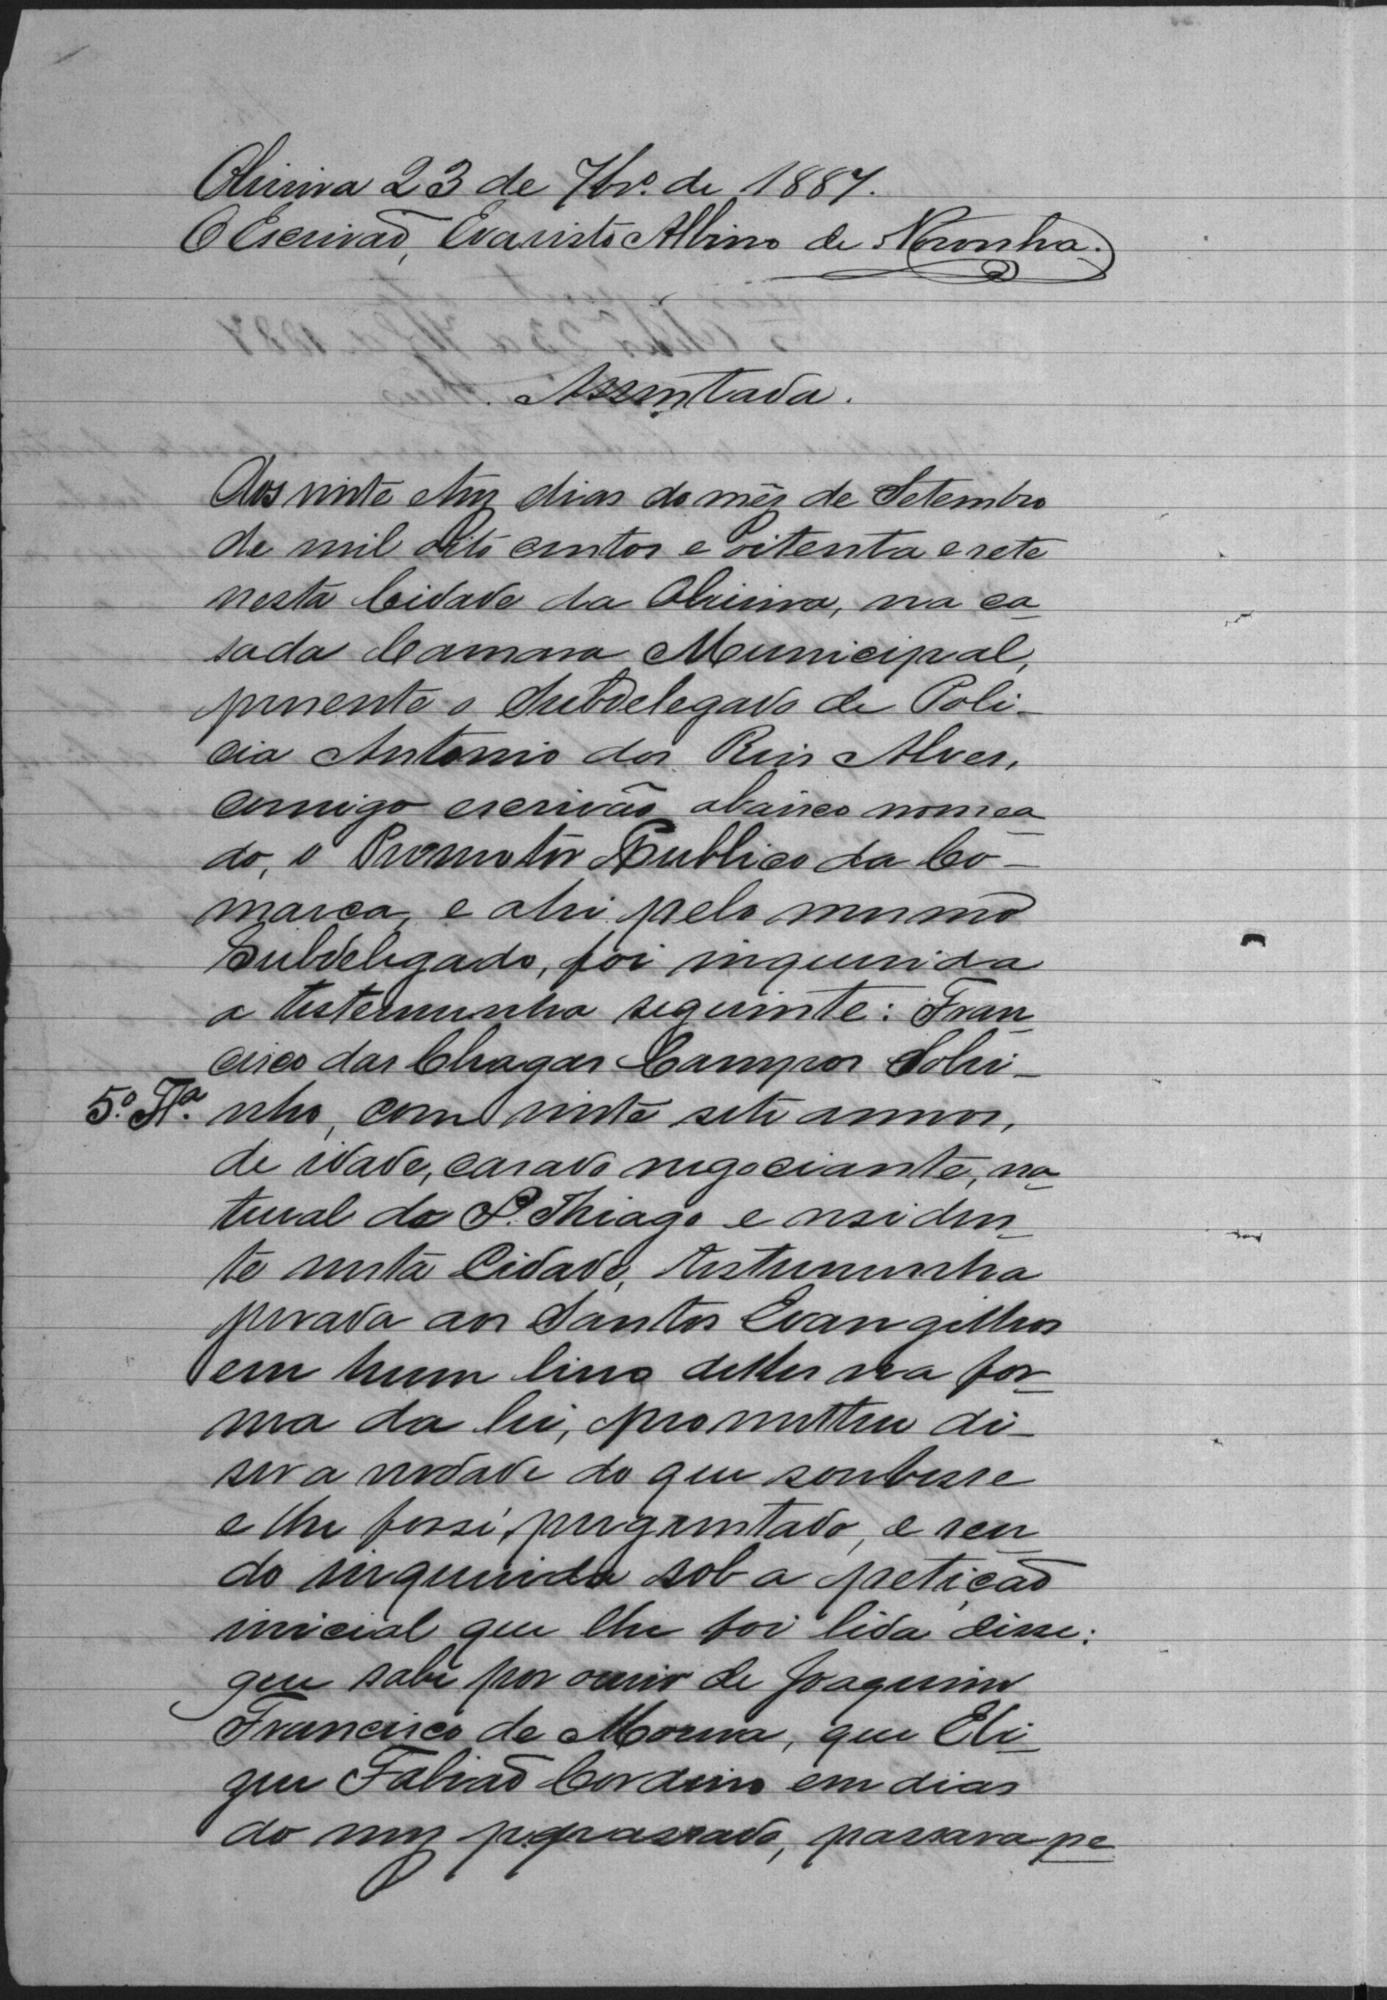 Oliveira 23 de 7br.º de 1887.
O Escrivão, Evaristo Albino de Noronha.
Assentada.
Aos vinte e tres dias do mês de Setembro
de mil oito centos e oitenta e sete
nesta Cidade da Oliveira, na ca
sa da Camara Municipal,
presente o Subdelegado de Poli-
cia Antonio dos Reis Alves,
comigo escrivão abaixo nomea
do, o Promotor Publico da Co-
marca, e ahi pelo mesmo
Subdelegado, foi inquerida
a testemunha seguinte: Fran
cisco das Chagas Campos Sobri-
5.º Tª. nho, com vinte sete annos,
de idade, casado negociante, na
tural de S. Thiago e residen
te nesta Cidade, testemunha
jurada aos Santos Evangelhos
em hum livro delles na for-
ma da lei, prometteu di-
ser a verdade do que soubesse
e lhe fosse perguntado, e sen
do inquerida sob a petição
inicial que lhe foi lida disse:
que sabe por ouvir de Joaquim
Francisco de Moura, que Eli-
que Fabião Cordeiro em dias
do mez p. passado, passara pe